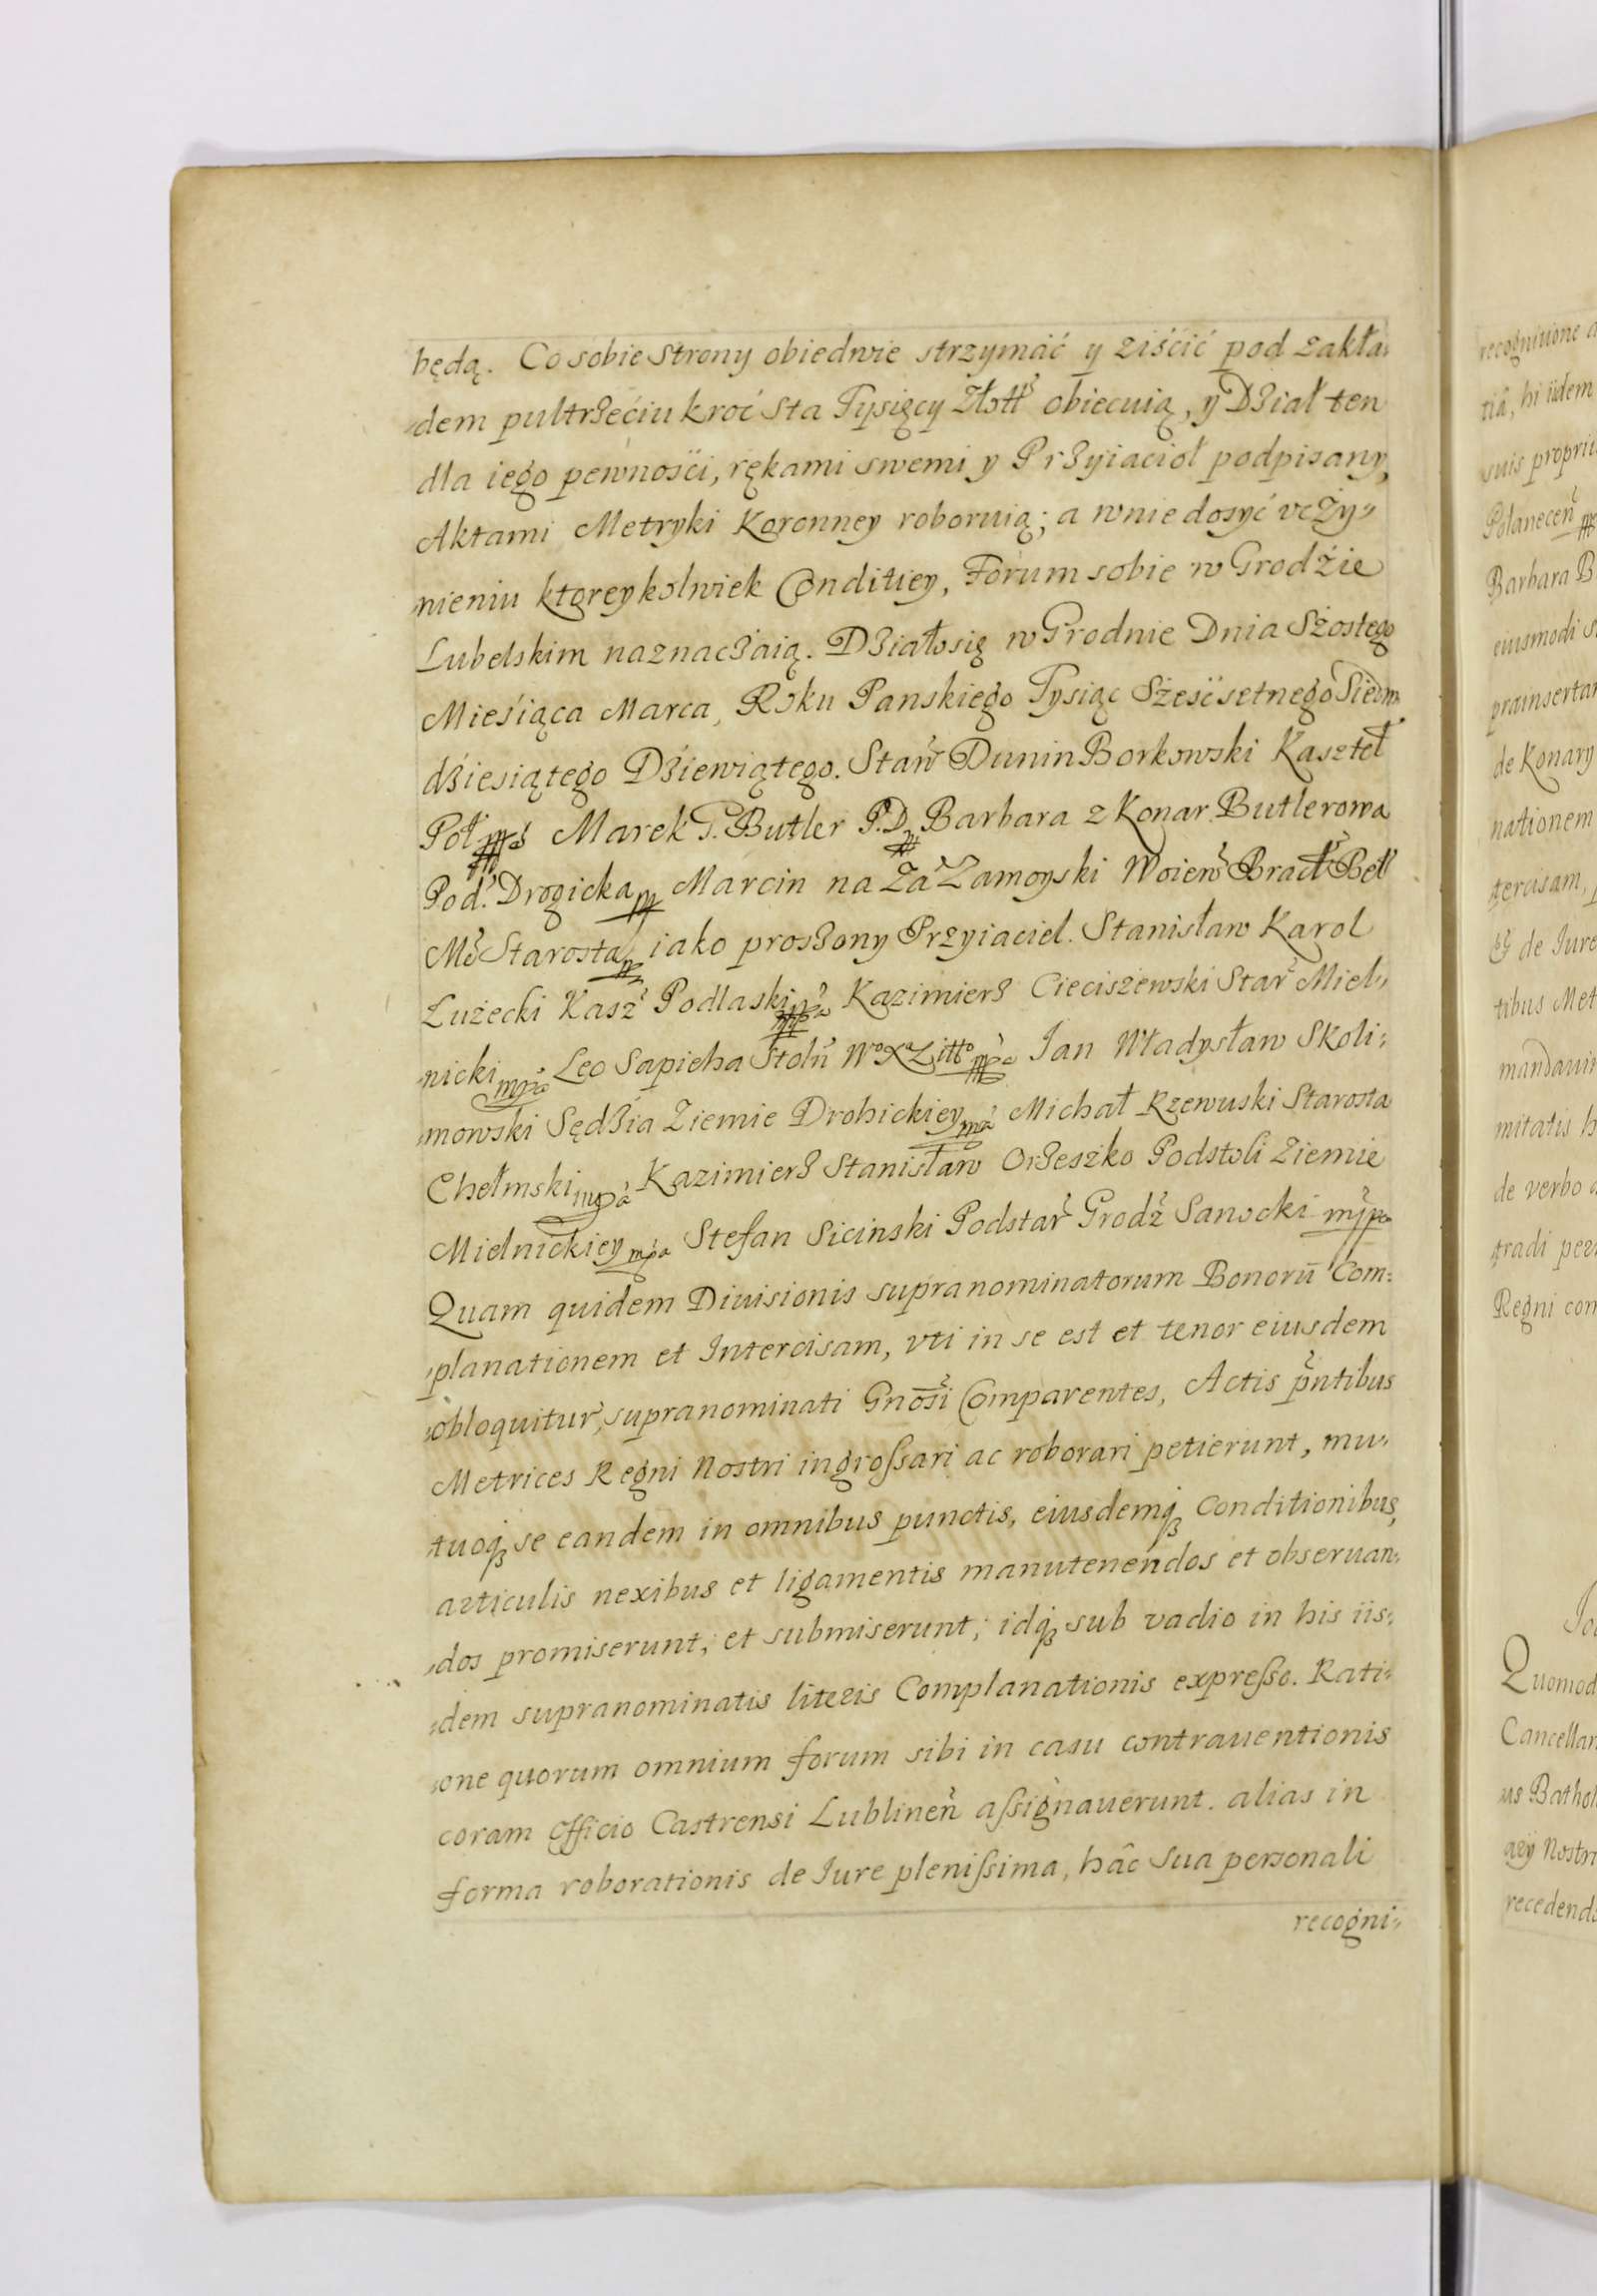 będą. Co sobie strony obiedwie strzymáć y ziśćić pod zakła„
„dem pultrzećiu kroć sta Tysięcy Złott obiecuią, y Dział ten
dla iego pewnośći, rękami swemi y Przyiacioł podpisany,
Aktami Metryki Koronney roboruią; a w nie dosyć vczy„
„nieniu ktoreykolwiek Conditiey, Forum sobie w Grodźie
Lubelskim naznaczaią. Działo się w Grodnie Dnia Szostego
Mieśiąca Marca, Roku Panskiego Tysiąc Szesćsetnego Siedm„
dźiesiątego Dźiewiątego. Staw̃ Dunin Borkowski Kasztel
Poł mpa Marek P. Butler P.D. mp Barbara z Konar Butlerowa
Pod. Drogicka mp Marcin na Za Zamoyski Woiew̃ Bracł Beł
Starosta mp iako proszony Przyiaciel. Stanisław Karol
Łużecki Kasz Podlaski mpa Kazimierz Cieciszewski Star Miel„
„nicki mpa Leo Sapieha Stolñ Wo Xa Litto mpa Ian Władysław Skoli„
„mowski Sędźia Ziemie Drohickiey mpa Michał Rzewuski Starosta
Chełmski mpa Kazimierz Stanisław Orzeszko Podstoli Ziemie
Mielnickiey mpa Stefan Sicinski Podstar Grodz Sanocki mpa
Quam quidem Diuisionis supranominatorum Bonorū Com„
„planationem et Intercisam, vti in se est et tenor eiusdem
„obloquitur, supranominati Gnōsi Comparentes, Actis p̃ntibus
Metrices Regni Nostri ingroſsari ac roborari petierunt, mu„
„tuoq́ꝫ se eandem in omnibus punctis, eiusdemq́ꝫ conditionibus,
articulis nexibus et ligamentis manutenendos et obseruan„
„dos promiserunt, et submiserunt; idq́ꝫ sub vadio in his iis„
„dem supranominatis literis Complanationis expreſso. Rati„
„one quorum omnium forum sibi in casu contrauentionis
coram Officio Castrensi Lublineñ aſsignauerunt. alias in
forma roborationis de Iure pleniſsima, hâc sua personali
recogni„
recognitione
tiâ, hi iidem
suis propriis
Połaneceñ
Barbara B
eiusmodi s
præinsertam
de Konary
nationem
tercisam,
de Iure
tibus Met
mandauim
mitatis h
de verbo
tradi per
Regni com
Quomod
Cancellar
us Bathol
Nostri
recedendo